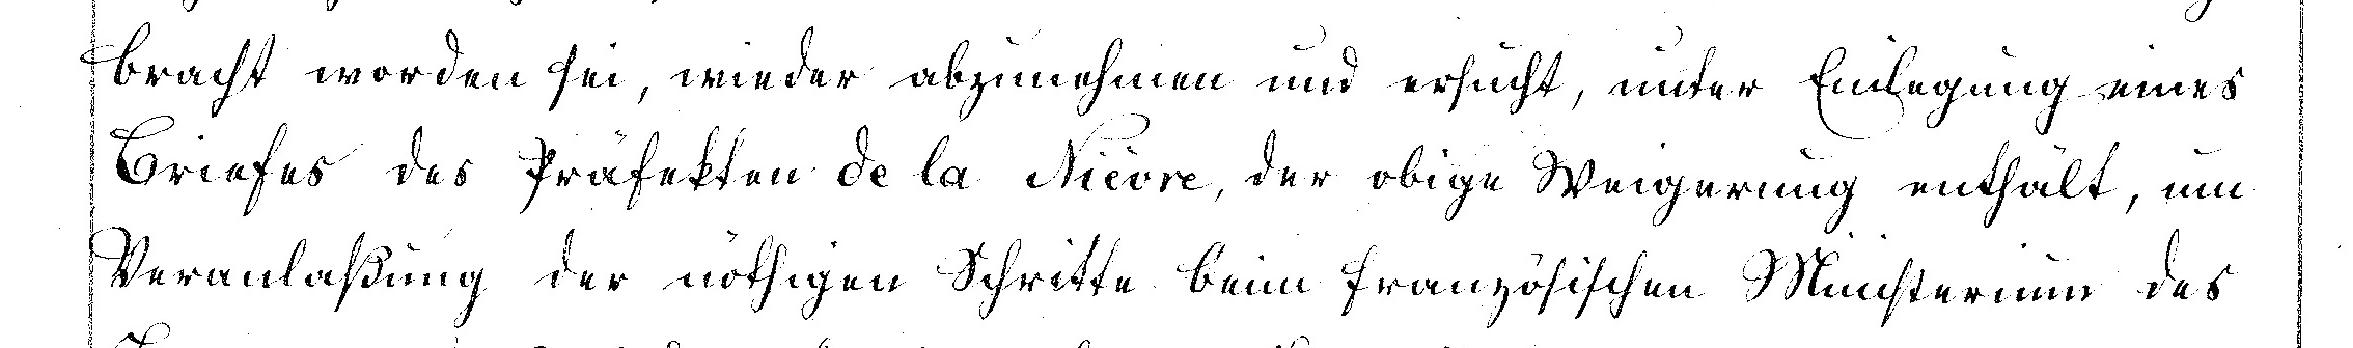 bracht worden sei, wieder abzunehmen und ersucht, unter Einlegung eines
Briefes des Präfekten de la Nièvre, der obige Weigerung enthält, um
Veranlaßung der nöthigen Schritte beim französischen Ministerium des